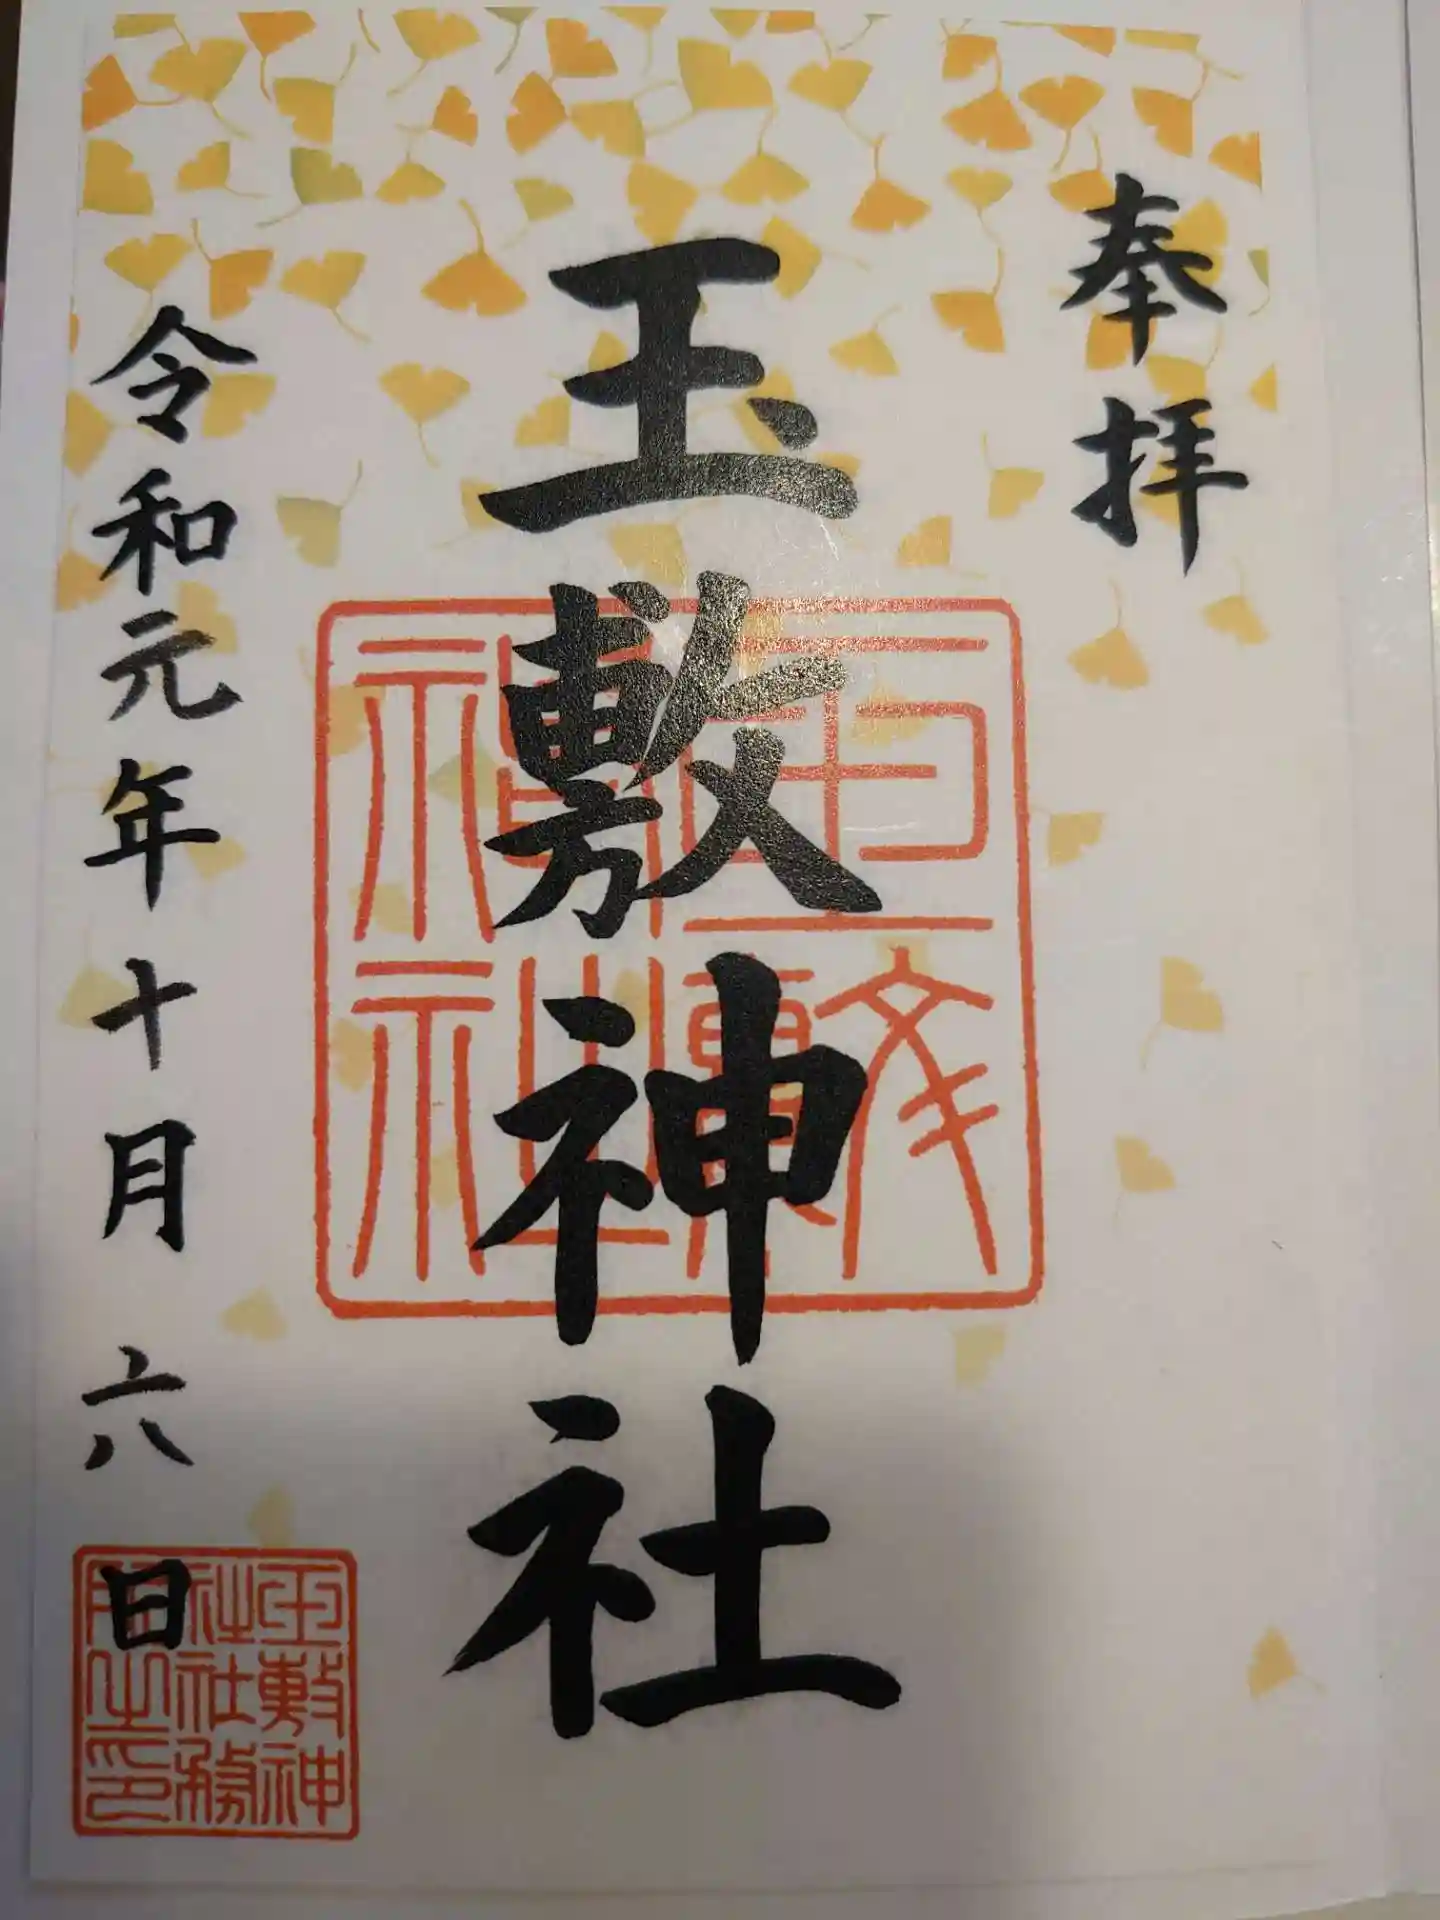 奉拝
玉敷神社
玉敷神社
令和元年十月六日
玉敷神
社社務
所之印